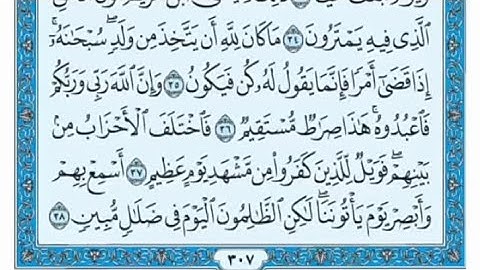 ٱلَّذِى فِيهِ يَمْتَرُونَ ٣٤ مَا كَانَ لِلَّهِ أَن يَتَّخِذَ مِن وَلَدٍ ۖ سُبْحَٰنَهُۥٓ ۚ
إِذَا قَضَىٰٓ أَمْرًا فَإِنَّمَا يَقُولُ لَهُۥ كُن فَيَكُونُ ٣٥ وَإِنَّ ٱللَّهَ رَبِّى وَرَبُّكُمْ
فَٱعْبُدُوهُ ۚ هَٰذَا صِرَٰطٌ مُّسْتَقِيمٌ ٣٦ فَٱخْتَلَفَ ٱلْأَحْزَابُ مِنۢ
بَيْنِهِمْ ۖ فَوَيْلٌ لِّلَّذِينَ كَفَرُوا۟ مِن مَّشْهَدِ يَوْمٍ عَظِيمٍ ٣٧ أَسْمِعْ بِهِمْ
وَأَبْصِرْ يَوْمَ يَأْتُونَنَا ۖ لَٰكِنِ ٱلظَّٰلِمُونَ ٱلْيَوْمَ فِى ضَلَٰلٍ مُّبِينٍ ٣٨
٣٠٧